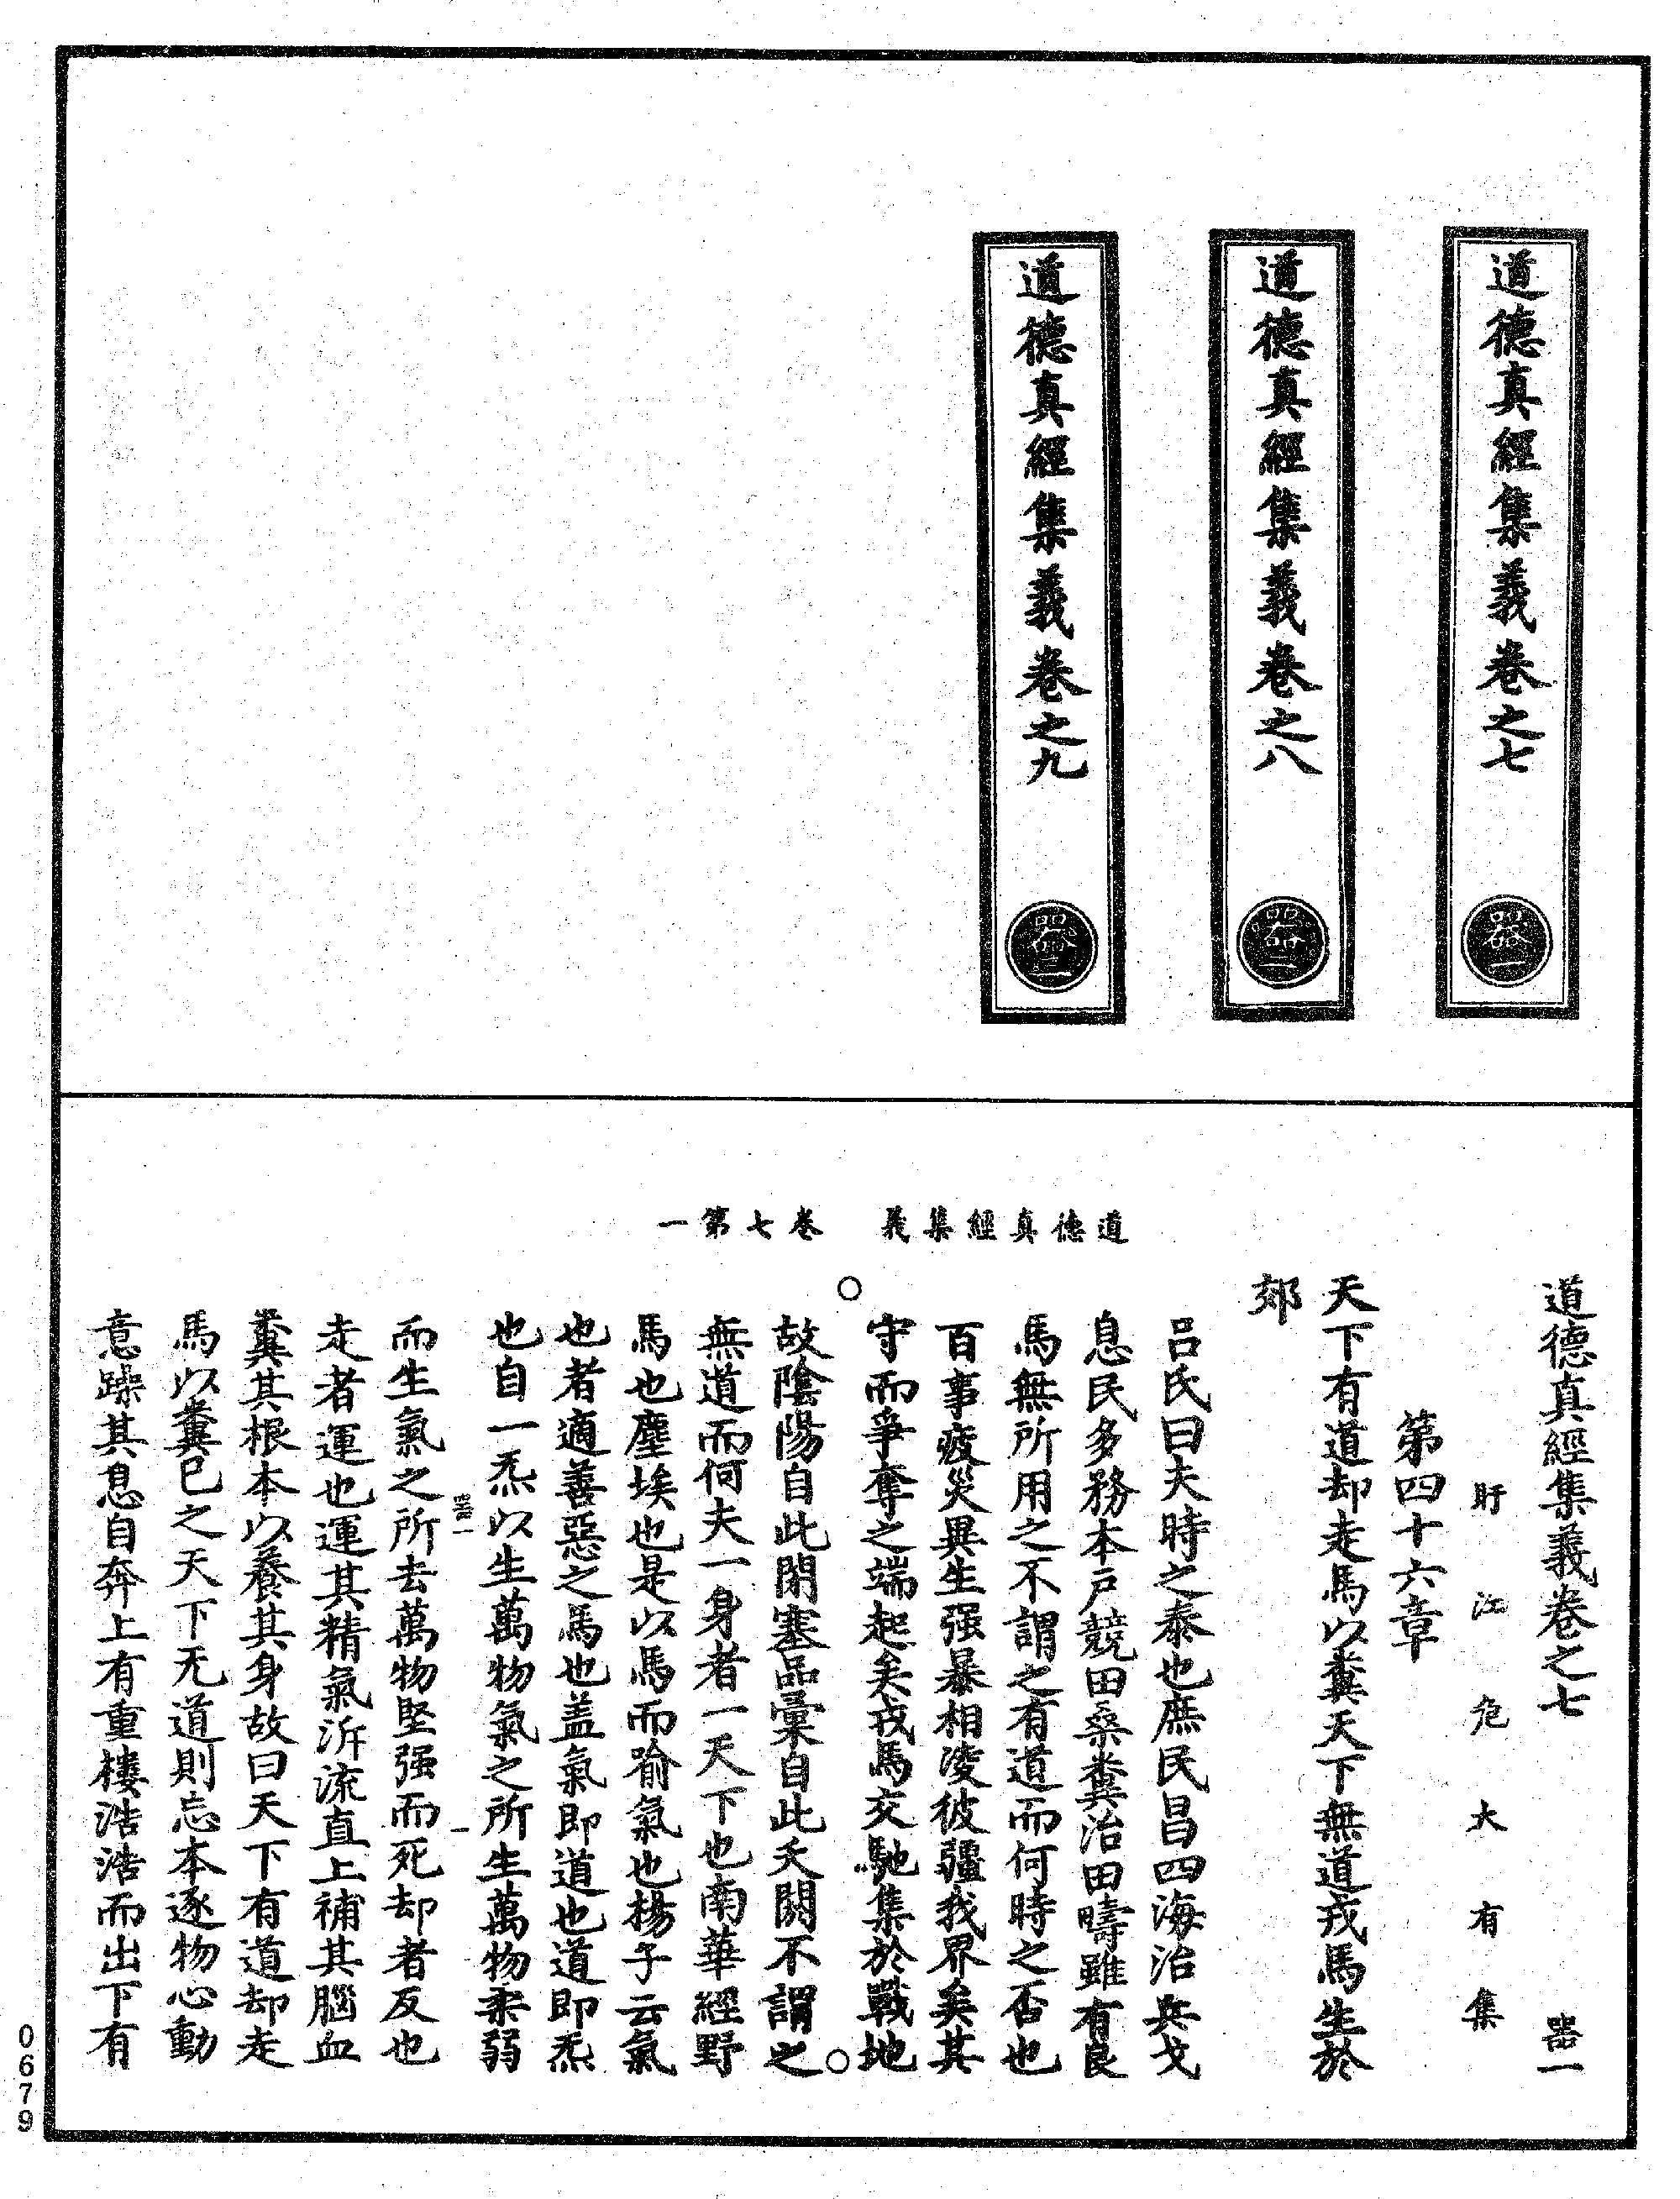 道德真經集義卷之七
器一
道德真經集義卷之八
器二
道德真經集義卷之九
器三
道德真經集義　卷七第一
道德真經集義卷之七　器一
盱江危大有集
第四十六章
天下有道却走馬以糞天下無道戎馬生於
郊
呂氏曰夫時之泰也庶民昌四海治兵戈
息民多務本戶競田桑糞治田疇雖有良
馬無所用之不謂之有道而何時之否也
百事疲災異生强暴相淩彼疆我界矣其
守而爭奪之端起矣戎馬交馳集於戰地
故陰陽自此閉塞品彙自此夭閼不謂之
無道而何夫一身者一天下也南華經野
馬也塵埃也是以馬而喻氣也楊子云氣
也者適善惡之馬也盖氣即道也道即炁
也自一炁以生萬物氣之所生萬物柔弱
器一　一
而生氣之所去萬物堅强而死却者反也
走者運也運其精氣泝流直上補其腦血
糞其根本以養其身故曰天下有道却走
馬以糞已之天下无道則忘本逐物心動
意躁其息自奔上有重樓浩浩而出下有
0679